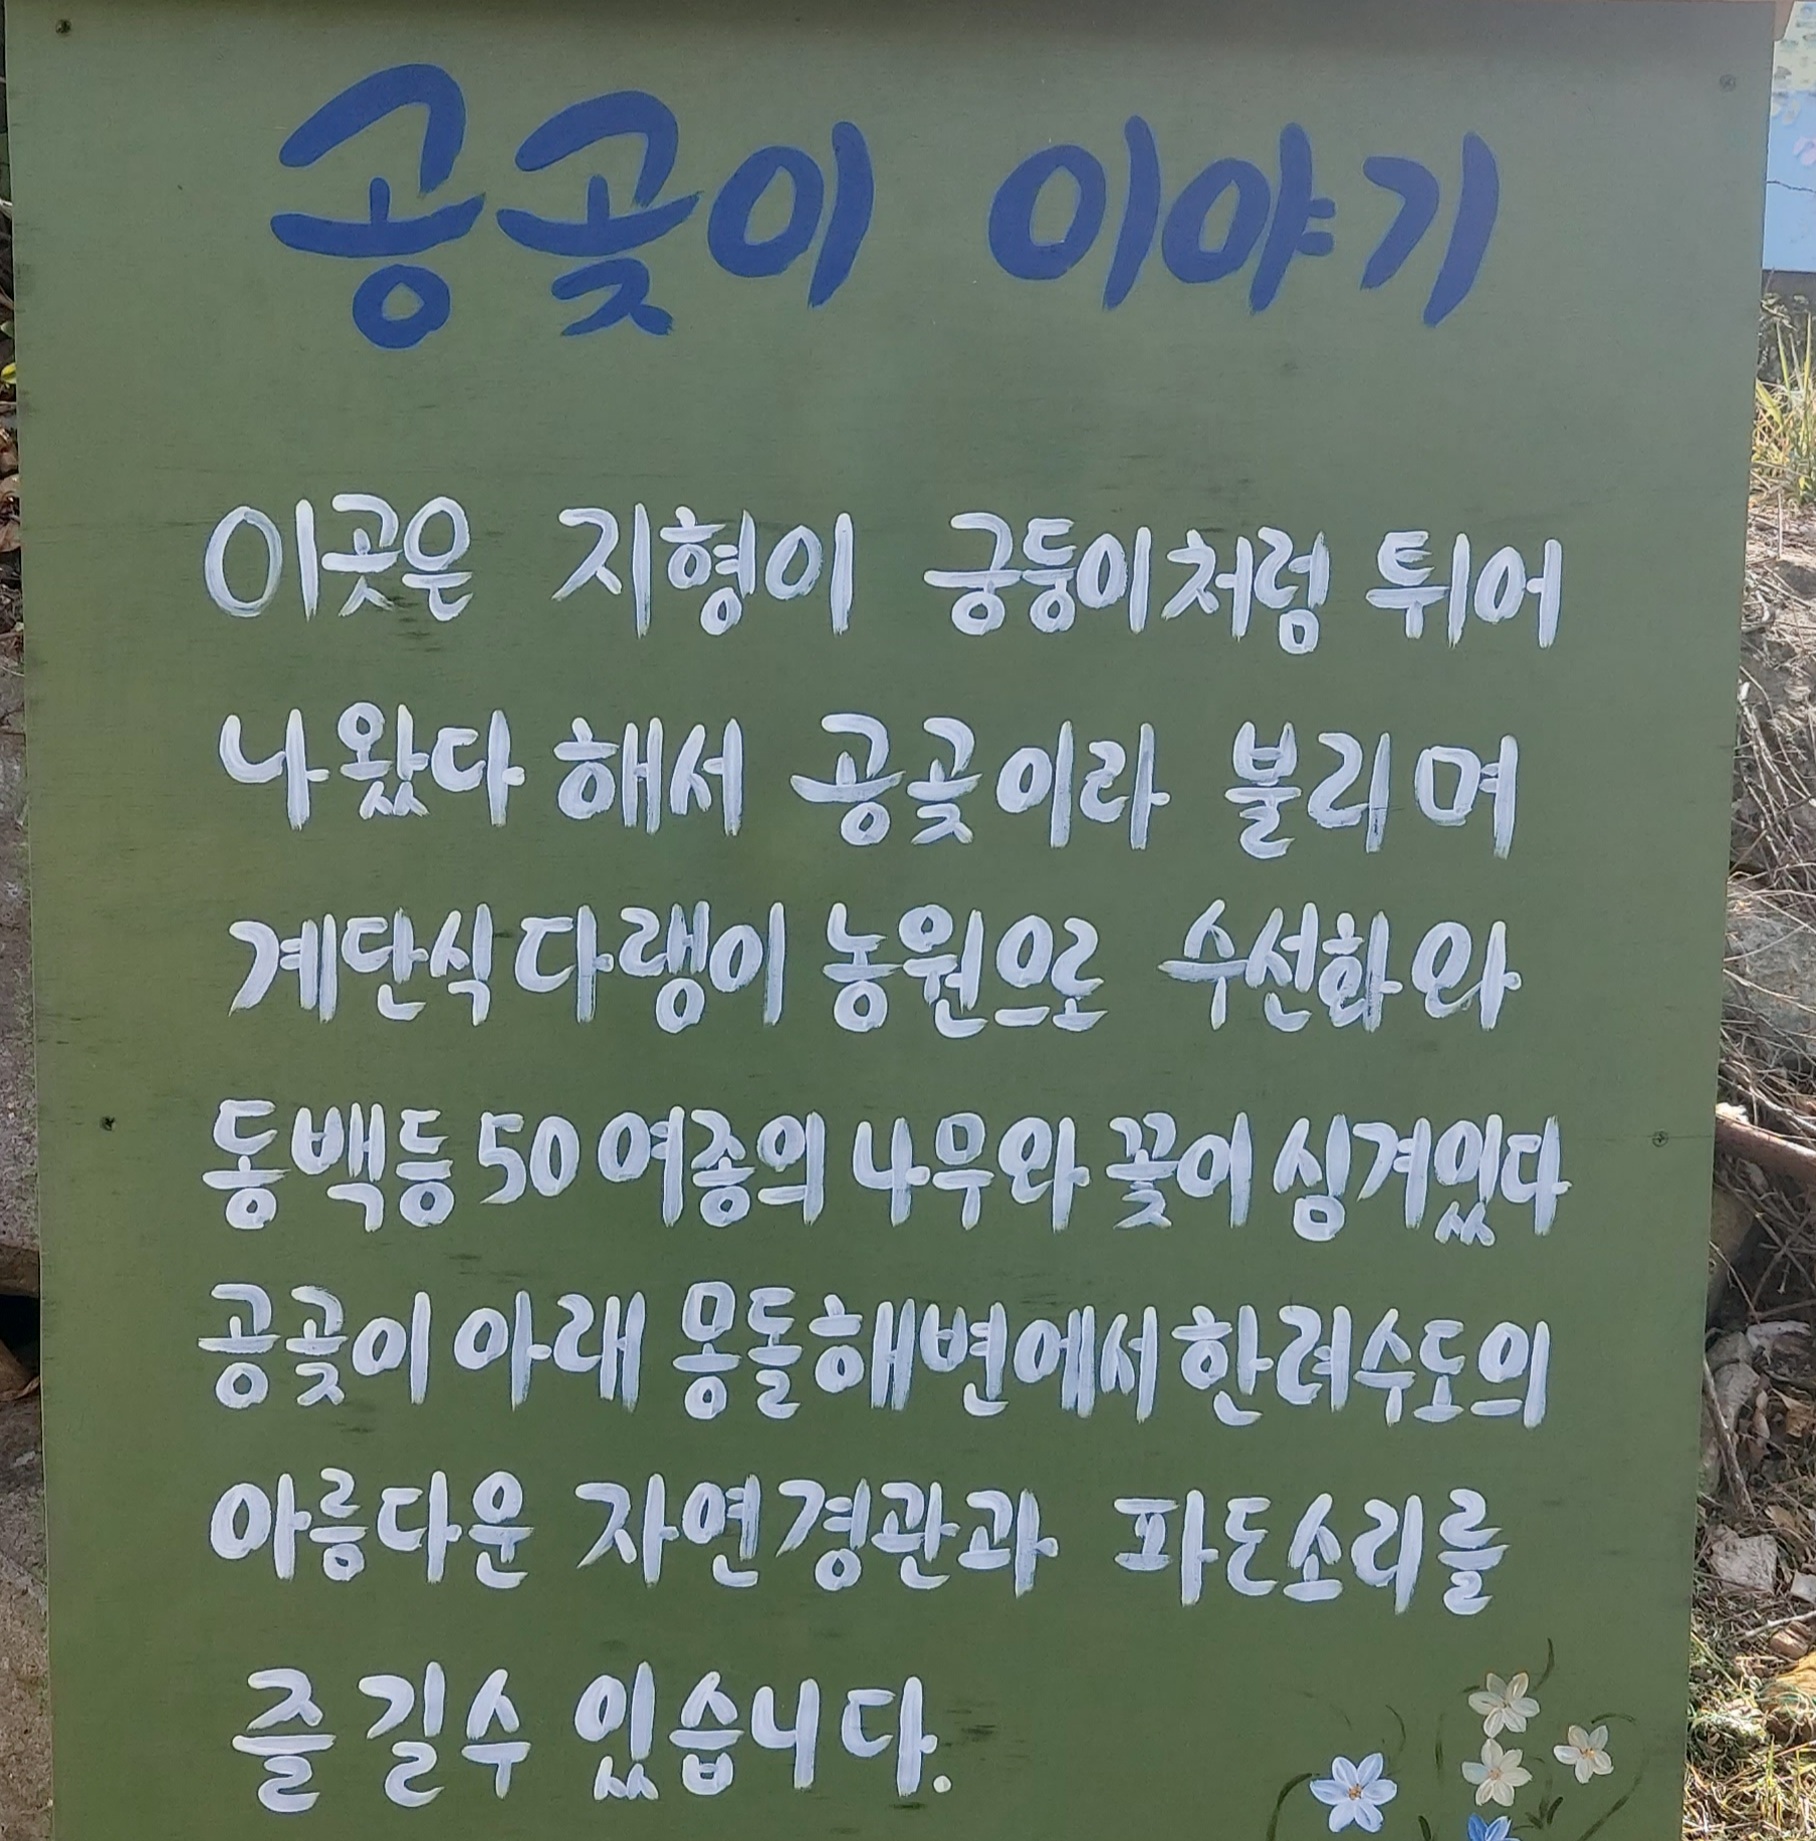 공곶이 이야기
이곳은 지형이 궁둥이처럼 튀어
나왔다 해서 공곶이라 불리며
계단식 다랭이 농원으로 수선화와
동백등 50여종의 나무와 꽃이 심겨있다
공곶이 아래 몽돌해변에서 한려수도의
아름다운 자연경관과 파도소리를
즐길수 있습니다.